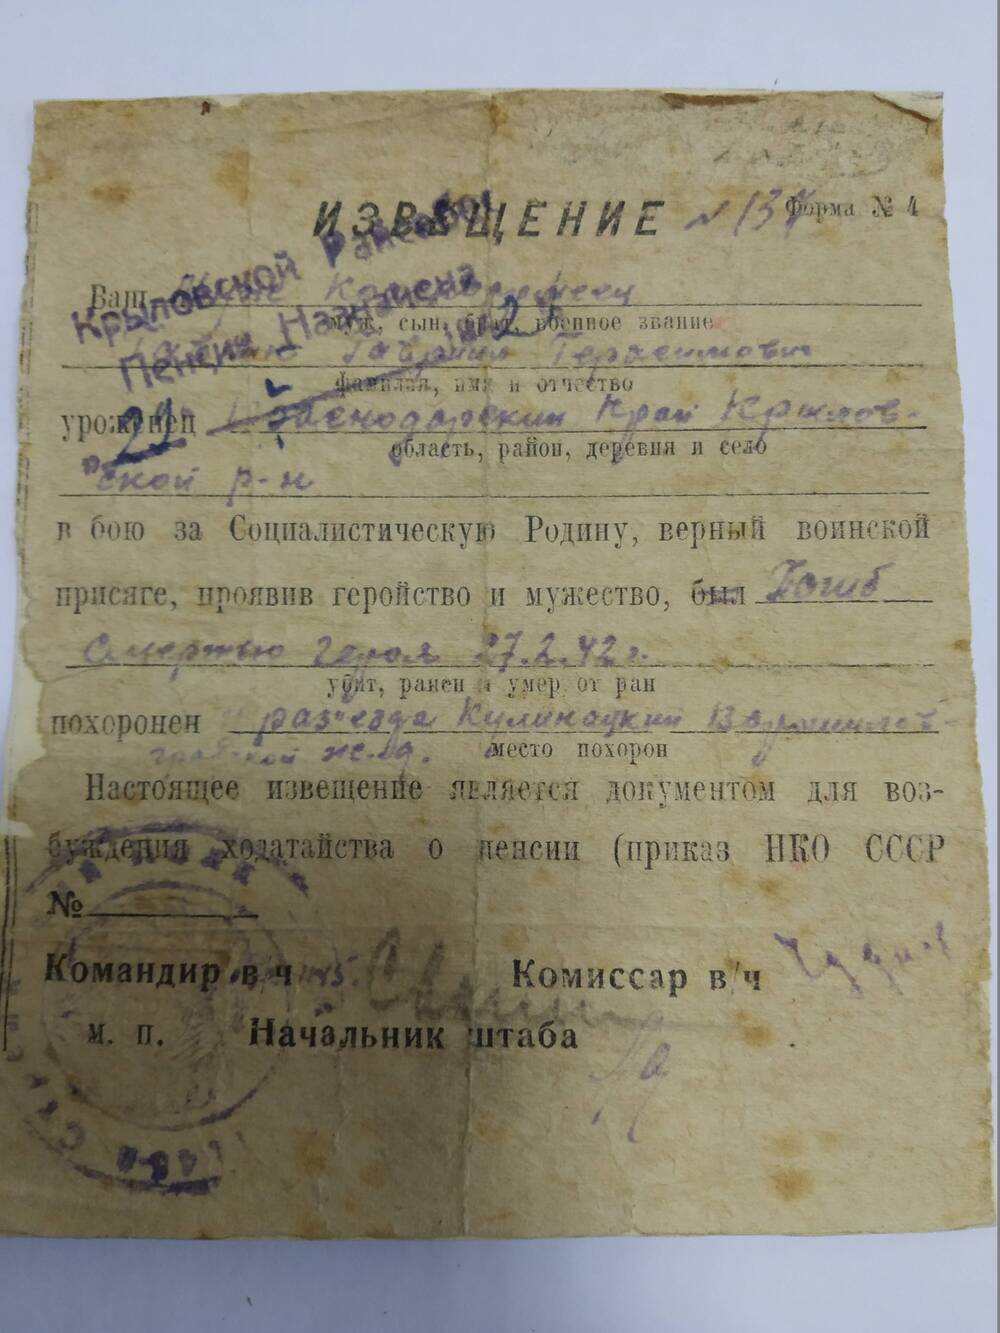 ИЗВЕЩЕНИЕ № 137 Форма № 4
Крыловской Райсобес
Пенсия Назначена
Ваш Красноармеец
муж, сын, брат, военное звание
Гавриил Герасимович
фамилия, имя и отчество
уроженец Краснодарский Край Крылов-
область, район, деревня и село
ской р-н
в бою за Социалистическую Родину, верный воинской
присяге, проявив геройство и мужество, был Погиб
Смертью героя 27.2.42 г.
убит, ранен и умер от ран
похоронен У раз'езда Ворошилов-
градской ж.д. место похорон
Настоящее извещение является документом для воз-
буждения ходатайства о пенсии (приказ НКО СССР
№
Командир в/ч Комиссар в/ч
м. п. Начальник штаба